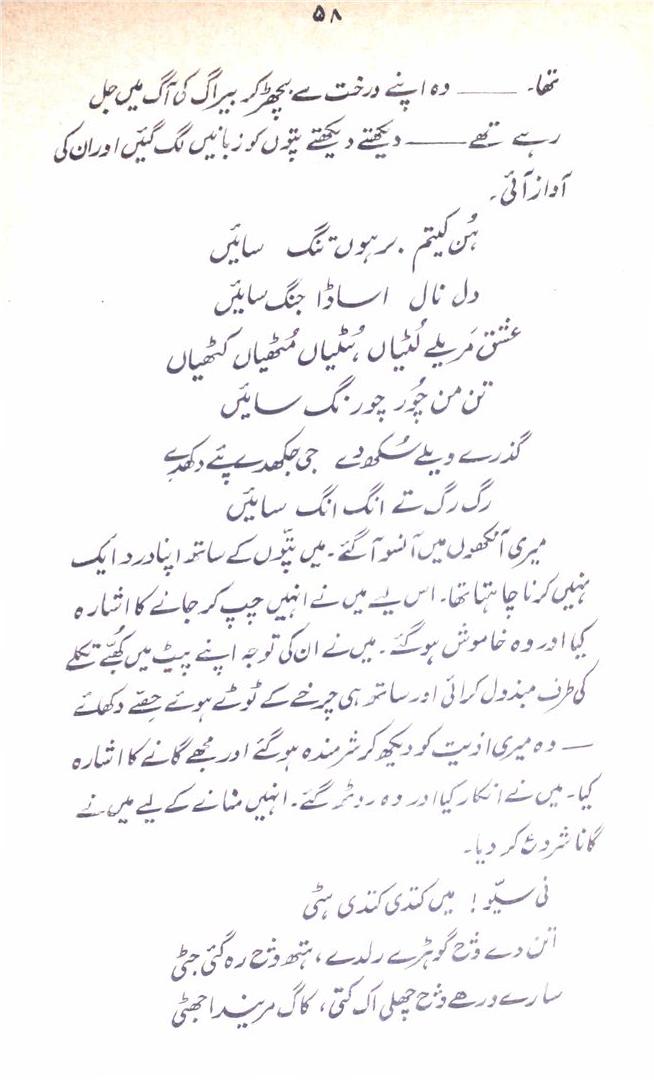 ۵۸
تھا۔ ——— وہ اپنے درخت سے بچھڑ کر بیراگ کی آگ میں جل
رہے تھے ——— دیکھتے دیکھتے پتوں کو زبانیں لگ گئیں اور ان کی
آواز آئی۔
ہُن کیتم برہوں تنگ سائیں
دل نال اساڈا جنگ سائیں
عشق مریلے لُٹیاں ہُٹیاں مُٹھیاں کُٹھیاں
تن من چُور چورنگ سائیں
گذرے ویلے سُکھ دے جی جکھدے پئے دکھدے
رگ رگ تے انگ انگ سائیں
میری آنکھوں میں آنسو آ گئے۔ میں پتّوں کے ساتھ اپنا درد ایک
نہیں کرنا چاہتا تھا۔ اس لیے میں نے انہیں چپ کر جانے کا اشارہ
کیا اور وہ خاموش ہو گئے۔ میں نے ان کی توجہ اپنے پیٹ میں کھُبے تکلے
کی طرف مبذول کرائی اور ساتھ ہی چرخے کے ٹوٹے ہوئے حِصّے دکھائے
— وہ میری اذیت کو دیکھ کر شرمندہ ہو گئے اور مجھے گانے کا اشارہ
کیا۔ میں نے انکار کیا اور وہ روٹھ گئے۔ انہیں منانے کے لیے میں نے
گانا شروع کر دیا۔
نی سیّو! میں کتدی کتدی ہٹی
اتن دے وچ گوہڑے رلدے، ہتھ وچ رہ گئی جٹی
سارے ورھے وچ چھلی اک کتی، کاگ مریندا جھٹی